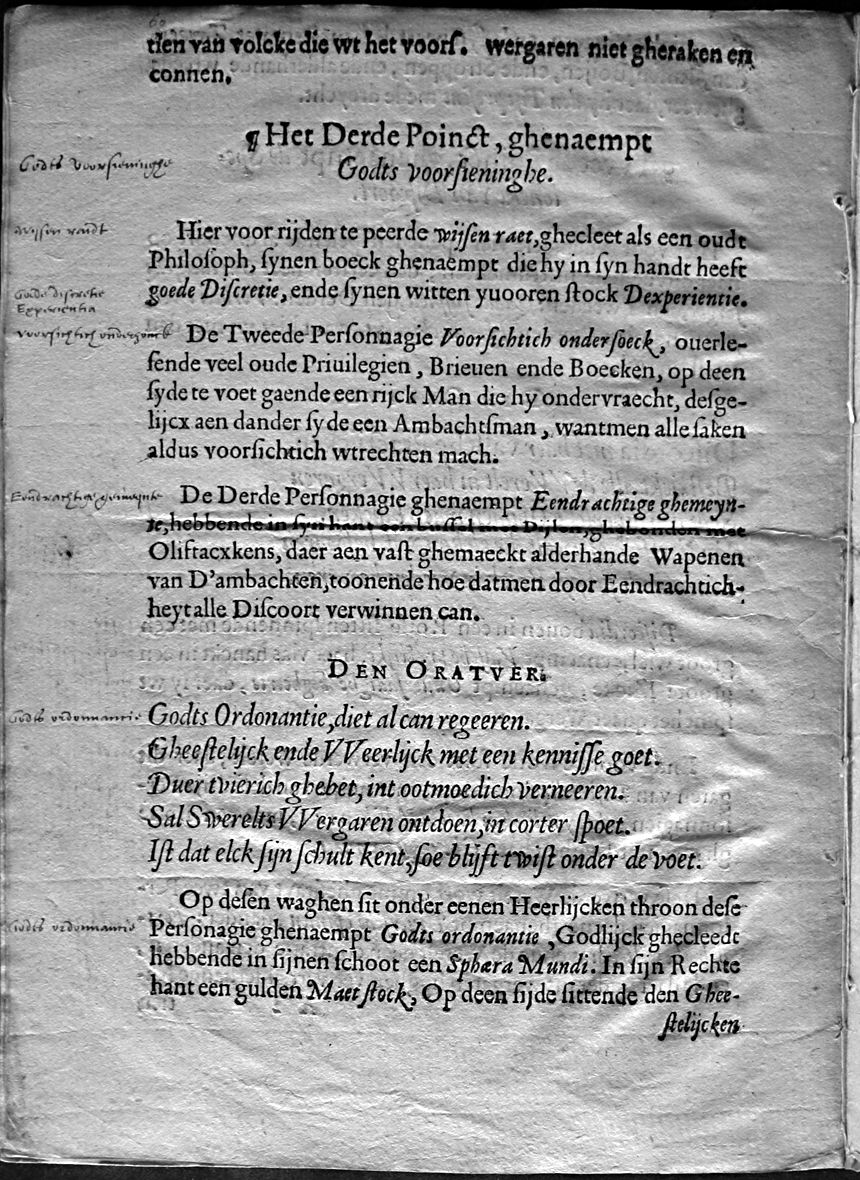 tien van volcke die wt het voorſ. wergaren niet gheraken en
connen.
¶ Het Derde Poinct, ghenaempt
Godts voorſieninghe.
Godts voorſieninghe
Hier voor rijden te peerde wijſen raet, ghecleet als een oudt
Philoſoph, ſynen boeck ghenaempt die hy in ſyn handt heeft
goede Diſcretie, ende ſynen witten yuooren ſtock Dexperientie.
wijſſen raedt
Goede diſcretie
Experientia
De Tweede Perſonnagie Voorſichtich onderſoeck, ouerle-
ſende veel oude Priuilegien, Brieuen ende Boecken, op deen
ſyde te voet gaende een rijck Man die hy ondervraecht, deſge-
lijcx aen dander ſyde een Ambachtſman, wantmen alle ſaken
aldus voorſichtich wtrechten mach.
voorſichtich
De Derde Perſonnagie ghenaempt Eendrachtige ghemeyn-
te, hebbende in ſyn hant een buſſel met Pijlen, ghebonden met
Oliftacxkens, daer aen vaſt ghemaeckt alderhande Wapenen
van D'ambachten, toonende hoe datmen door Eendrachtich-
heyt alle Diſcoort verwinnen can.
Eendrachtige gemeynte
DEN ORATVER.
Godts Ordonantie, diet al can regeeren.
Gheeſtelijck ende VVeerlijck met een kenniſſe goet.
Duer tvierich ghebet, int ootmoedich verneeren.
Sal Swerelts VVergaren ontdoen, in corter ſpoet.
Iſt dat elck ſijn ſchult kent, ſoe blijft twiſt onder de voet.
Godts ordonnantie
Op deſen waghen ſit onder eenen Heerlijcken throon deſe
Perſonagie ghenaempt Godts ordonantie, Godlijck ghecleedt
hebbende in ſijnen ſchoot een Sphæra Mundi. In ſijn Rechte
hant een gulden Maet ſtock, Op deen ſijde ſittende den Ghee-
ſtelijcken
Godts ordonnantie